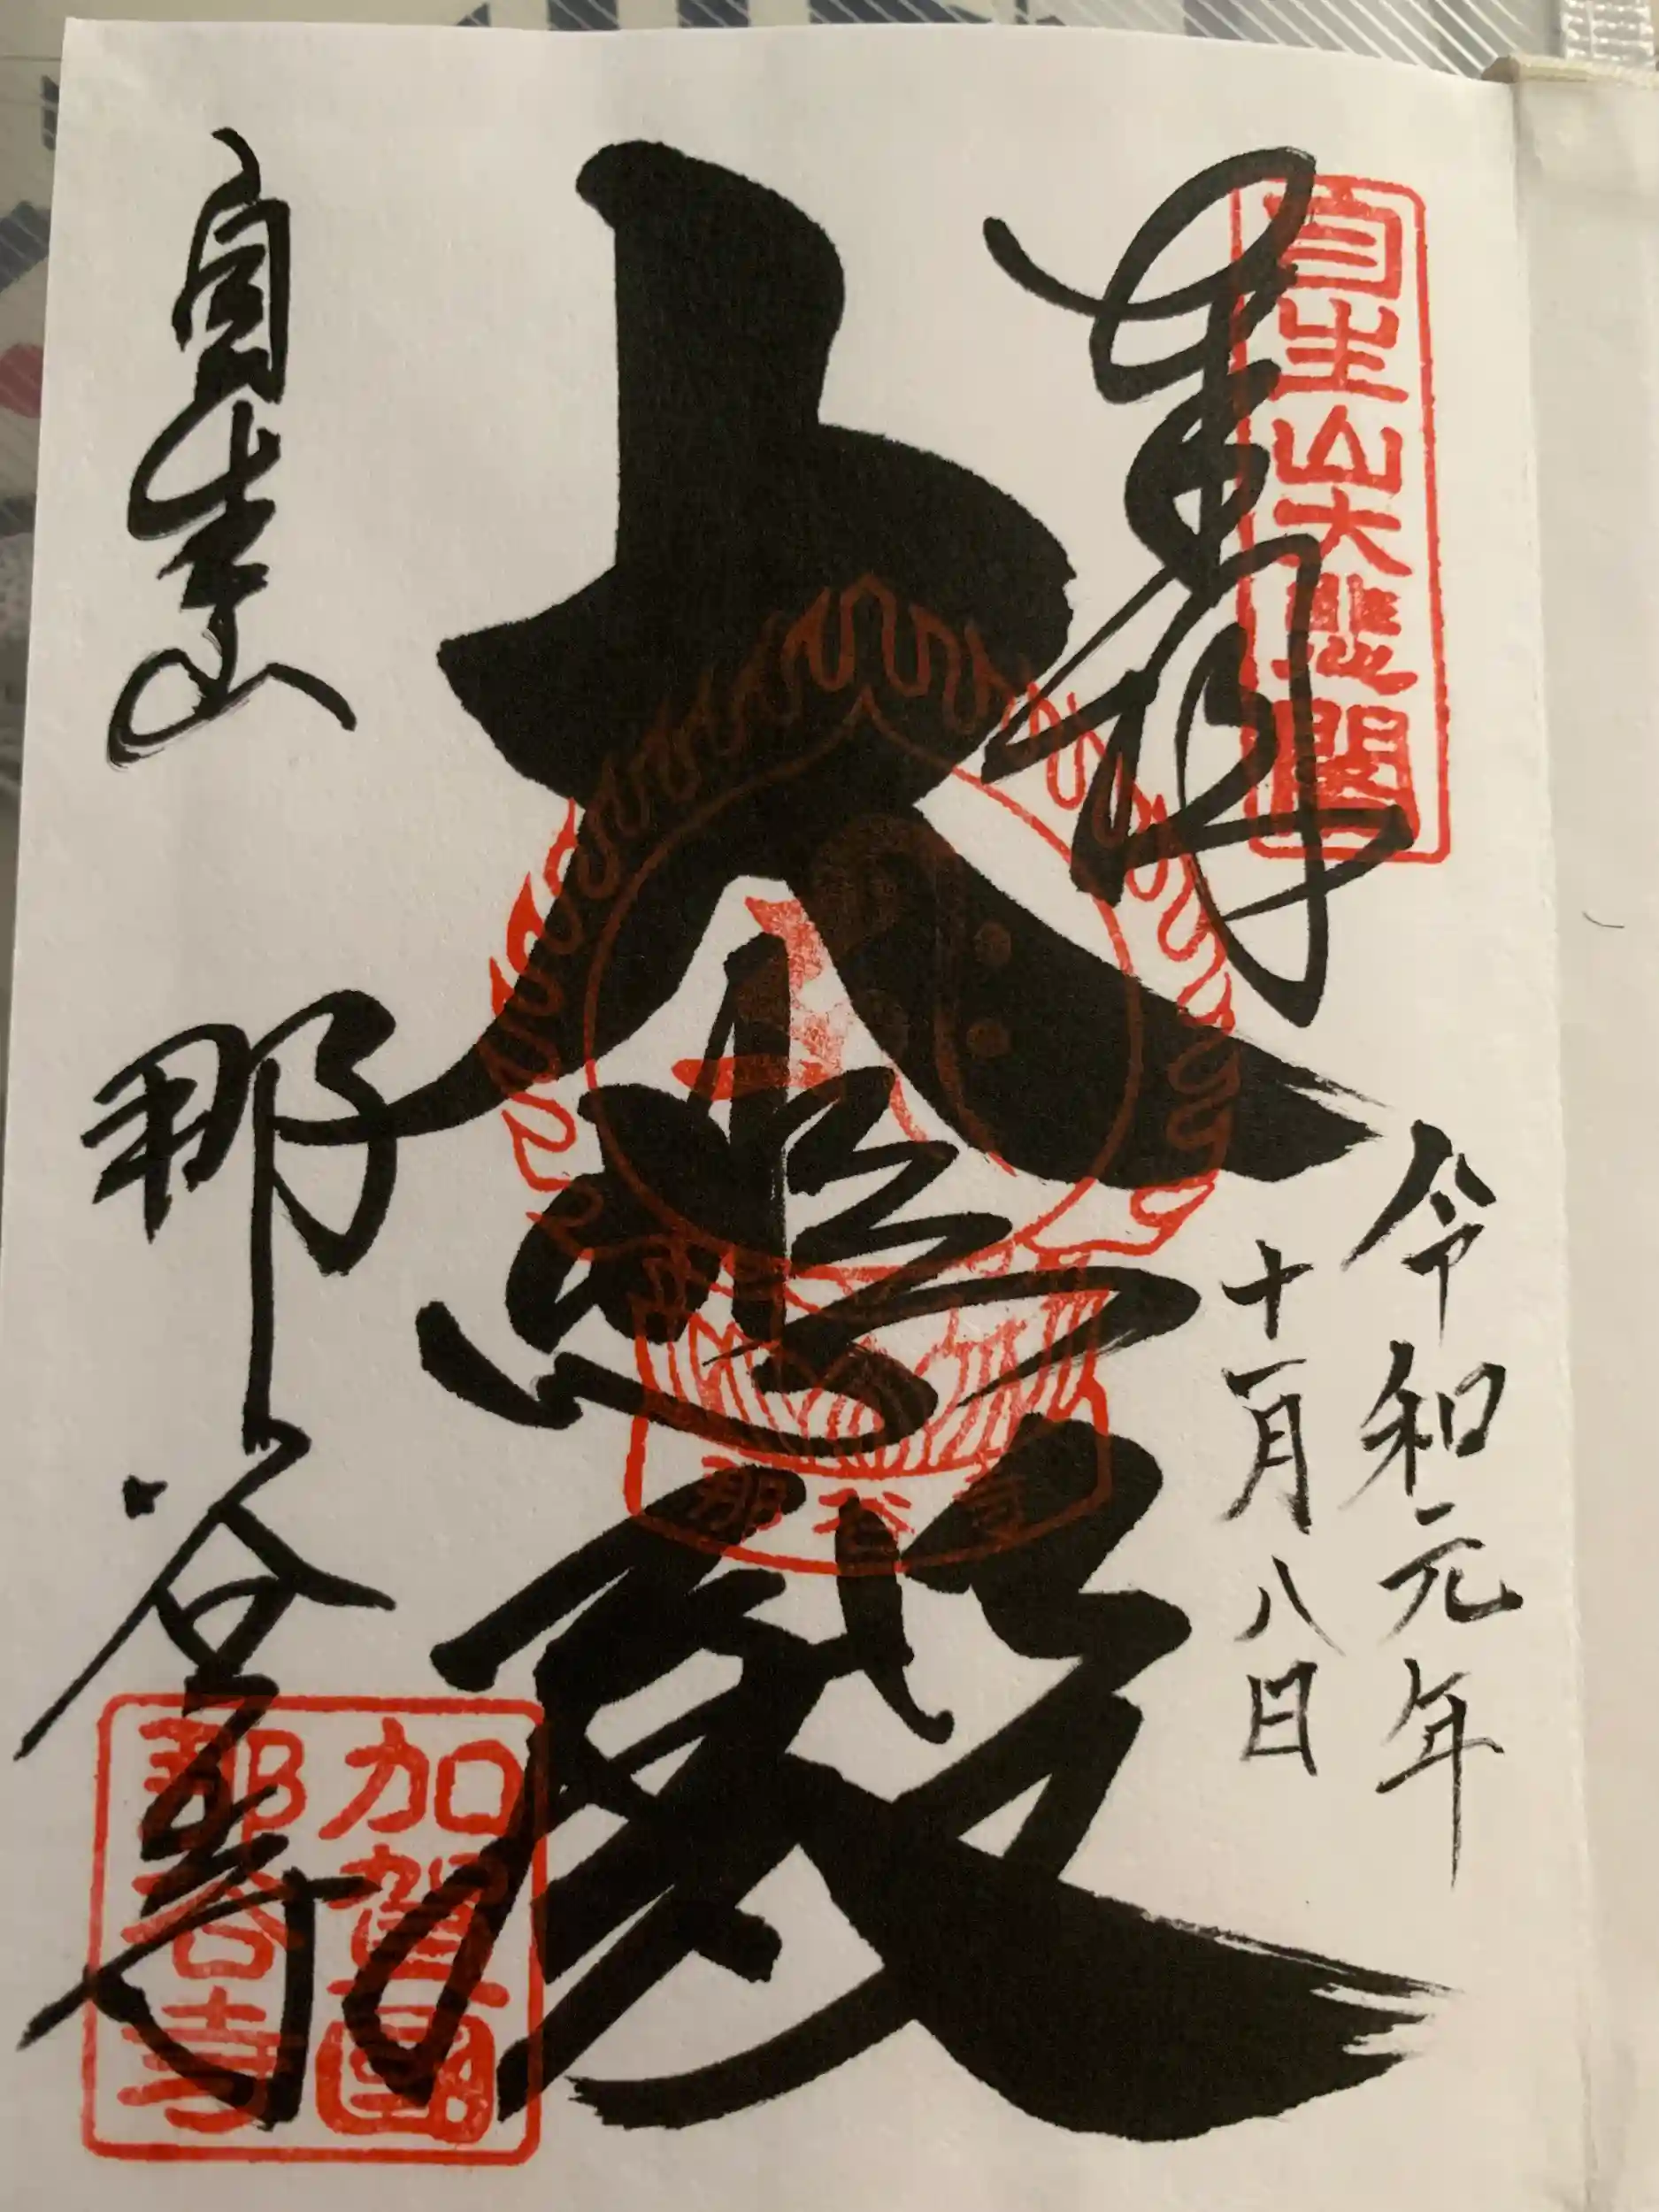 奉拝
自生山大悲閣
令和元年
十一月八日
大悲殿
那谷寺
自生山
那谷寺
加賀國
那谷寺